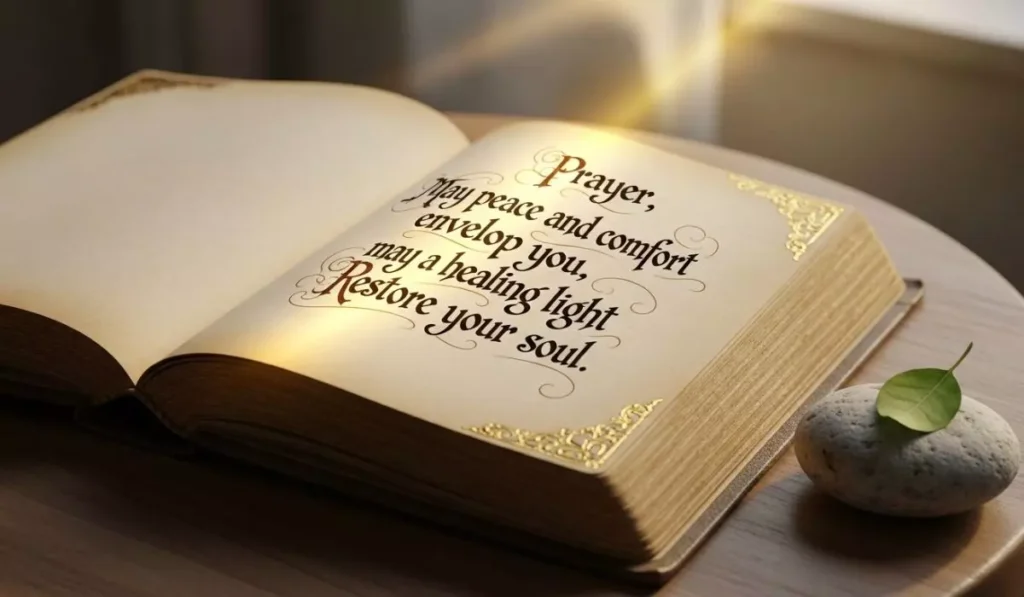 Prayer,
May peace and comfort
envelop you,
may a healing light
Restore your soul.